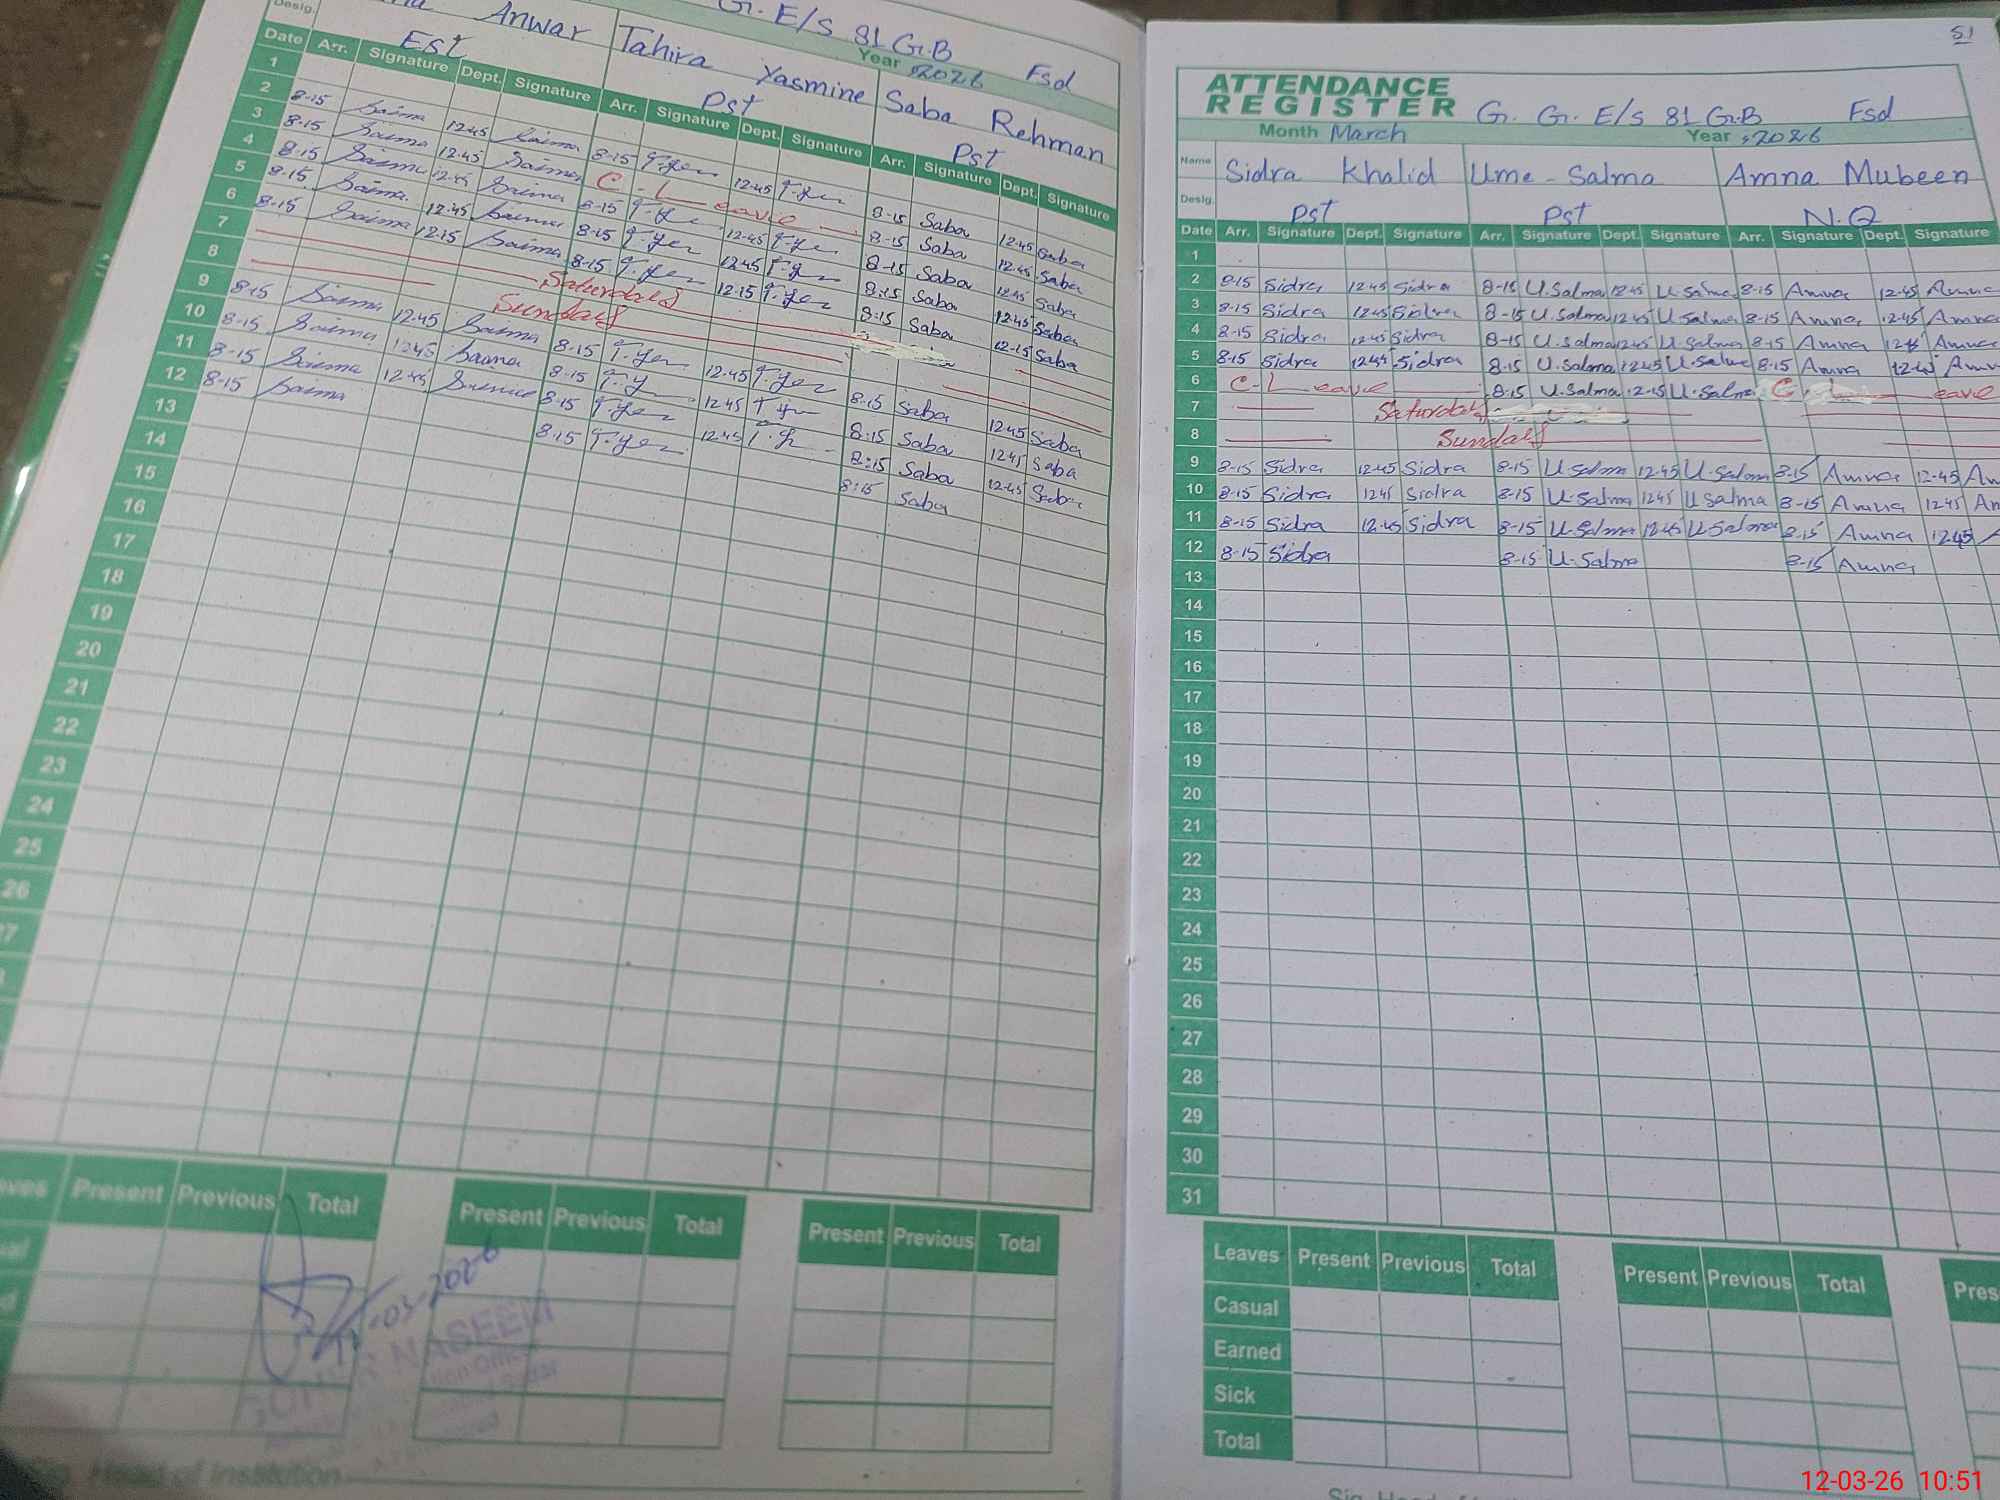 Gr. E/S 81 G.B Fsd
Year 2026
Anwar Tahira Yasmine Saba Rehman
Desig. Est Pst Pst
Date Arr. Signature Dept. Signature Arr. Signature Dept. Signature Arr. Signature Dept. Signature
1
2 8-15 Saima 12.45 Saima 8-15 T.Yer 12.45 T.Yer 8-15 Saba 12.45 Saba
3 8-15 Saima 12.45 Saima C-Leave 8-15 Saba 12.45 Saba
4 8-15 Saima 12.45 Saima 8-15 T.Yer 12.45 T.Ye 8-15 Saba 12.45 Saba
5 8-15 Saima 12.45 Saima 8-15 T.Yer 12.45 T.Yer 8:15 Saba 12.45 Saba
6 8-15 Saima 12.15 Saima 8-15 T.Yer 12.15 T.Yer 8:15 Saba 12.15 Saba
7 Saturday
8 Sunday
9 8-15 Saima 12.45 Saima 8-15 T.Yer 12.45 T.Yer 8:15 Saba 12.45 Saba
10 8-15 Saima 12.45 Saima 8-15 T.Y 12.45 T.Yer 8:15 Saba 12.45 Saba
11 8-15 Saima 12.45 Saima 8-15 T.Yer 12.45 8:15 Saba 12.45 Saba
12 8-15 Saima 8-15 T.Yer 8:15 Saba
13
14
15
16
17
18
19
20
21
22
23
24
25
26
Present Previous Total Present Previous Total Present Previous Total
03-2026
NASEEM
Head of Institution
51
ATTENDANCE
REGISTER G. G. E/S 81 G.B Fsd
Month March Year 2026
Name Sidra Khalid Ume-Salma Amna Mubeen
Desig. Pst Pst N.Q
Date Arr. Signature Dept. Signature Arr. Signature Dept. Signature Arr. Signature Dept. Signature
1
2 8-15 Sidra 12.45 Sidra 8-15 U.Salma 12.45 U.Salma 8-15 Amna 12.45 Amna
3 8-15 Sidra 12.45 Sidra 8-15 U.Salma 12.45 U.Salma 8-15 Amna 12.45 Amna
4 8-15 Sidra 12.45 Sidra 8-15 U.Salma 12.45 U.Salma 8-15 Amna Amna
5 8-15 Sidra 12.45 Sidra 8-15 U.Salma 12.45 U.Salma 8-15 Amna 12.45
6 C-Leave 8-15 U.Salma 12-15 U.Salma C-L eave
7 Saturday
8 Sunday
9 8-15 Sidra 12.45 Sidra 8-15 U.Salma 12.45 U.Salma 8-15 Amna 12.45
10 8-15 Sidra 12.45 Sidra 8-15 U.Salma 12.45 U.Salma 8-15 Amna 12.45
11 8-15 Sidra 12.45 Sidra 8-15 U.Salma 12.45 U.Salma 8-15 Amna 12.45
12 8-15 Sidra 8-15 U.Salma 8-15 Amna
13
14
15
16
17
18
19
20
21
22
23
24
25
26
27
28
29
30
31
Leaves Present Previous Total Present Previous Total
Casual
Earned
Sick
Total
12-03-26 10:51